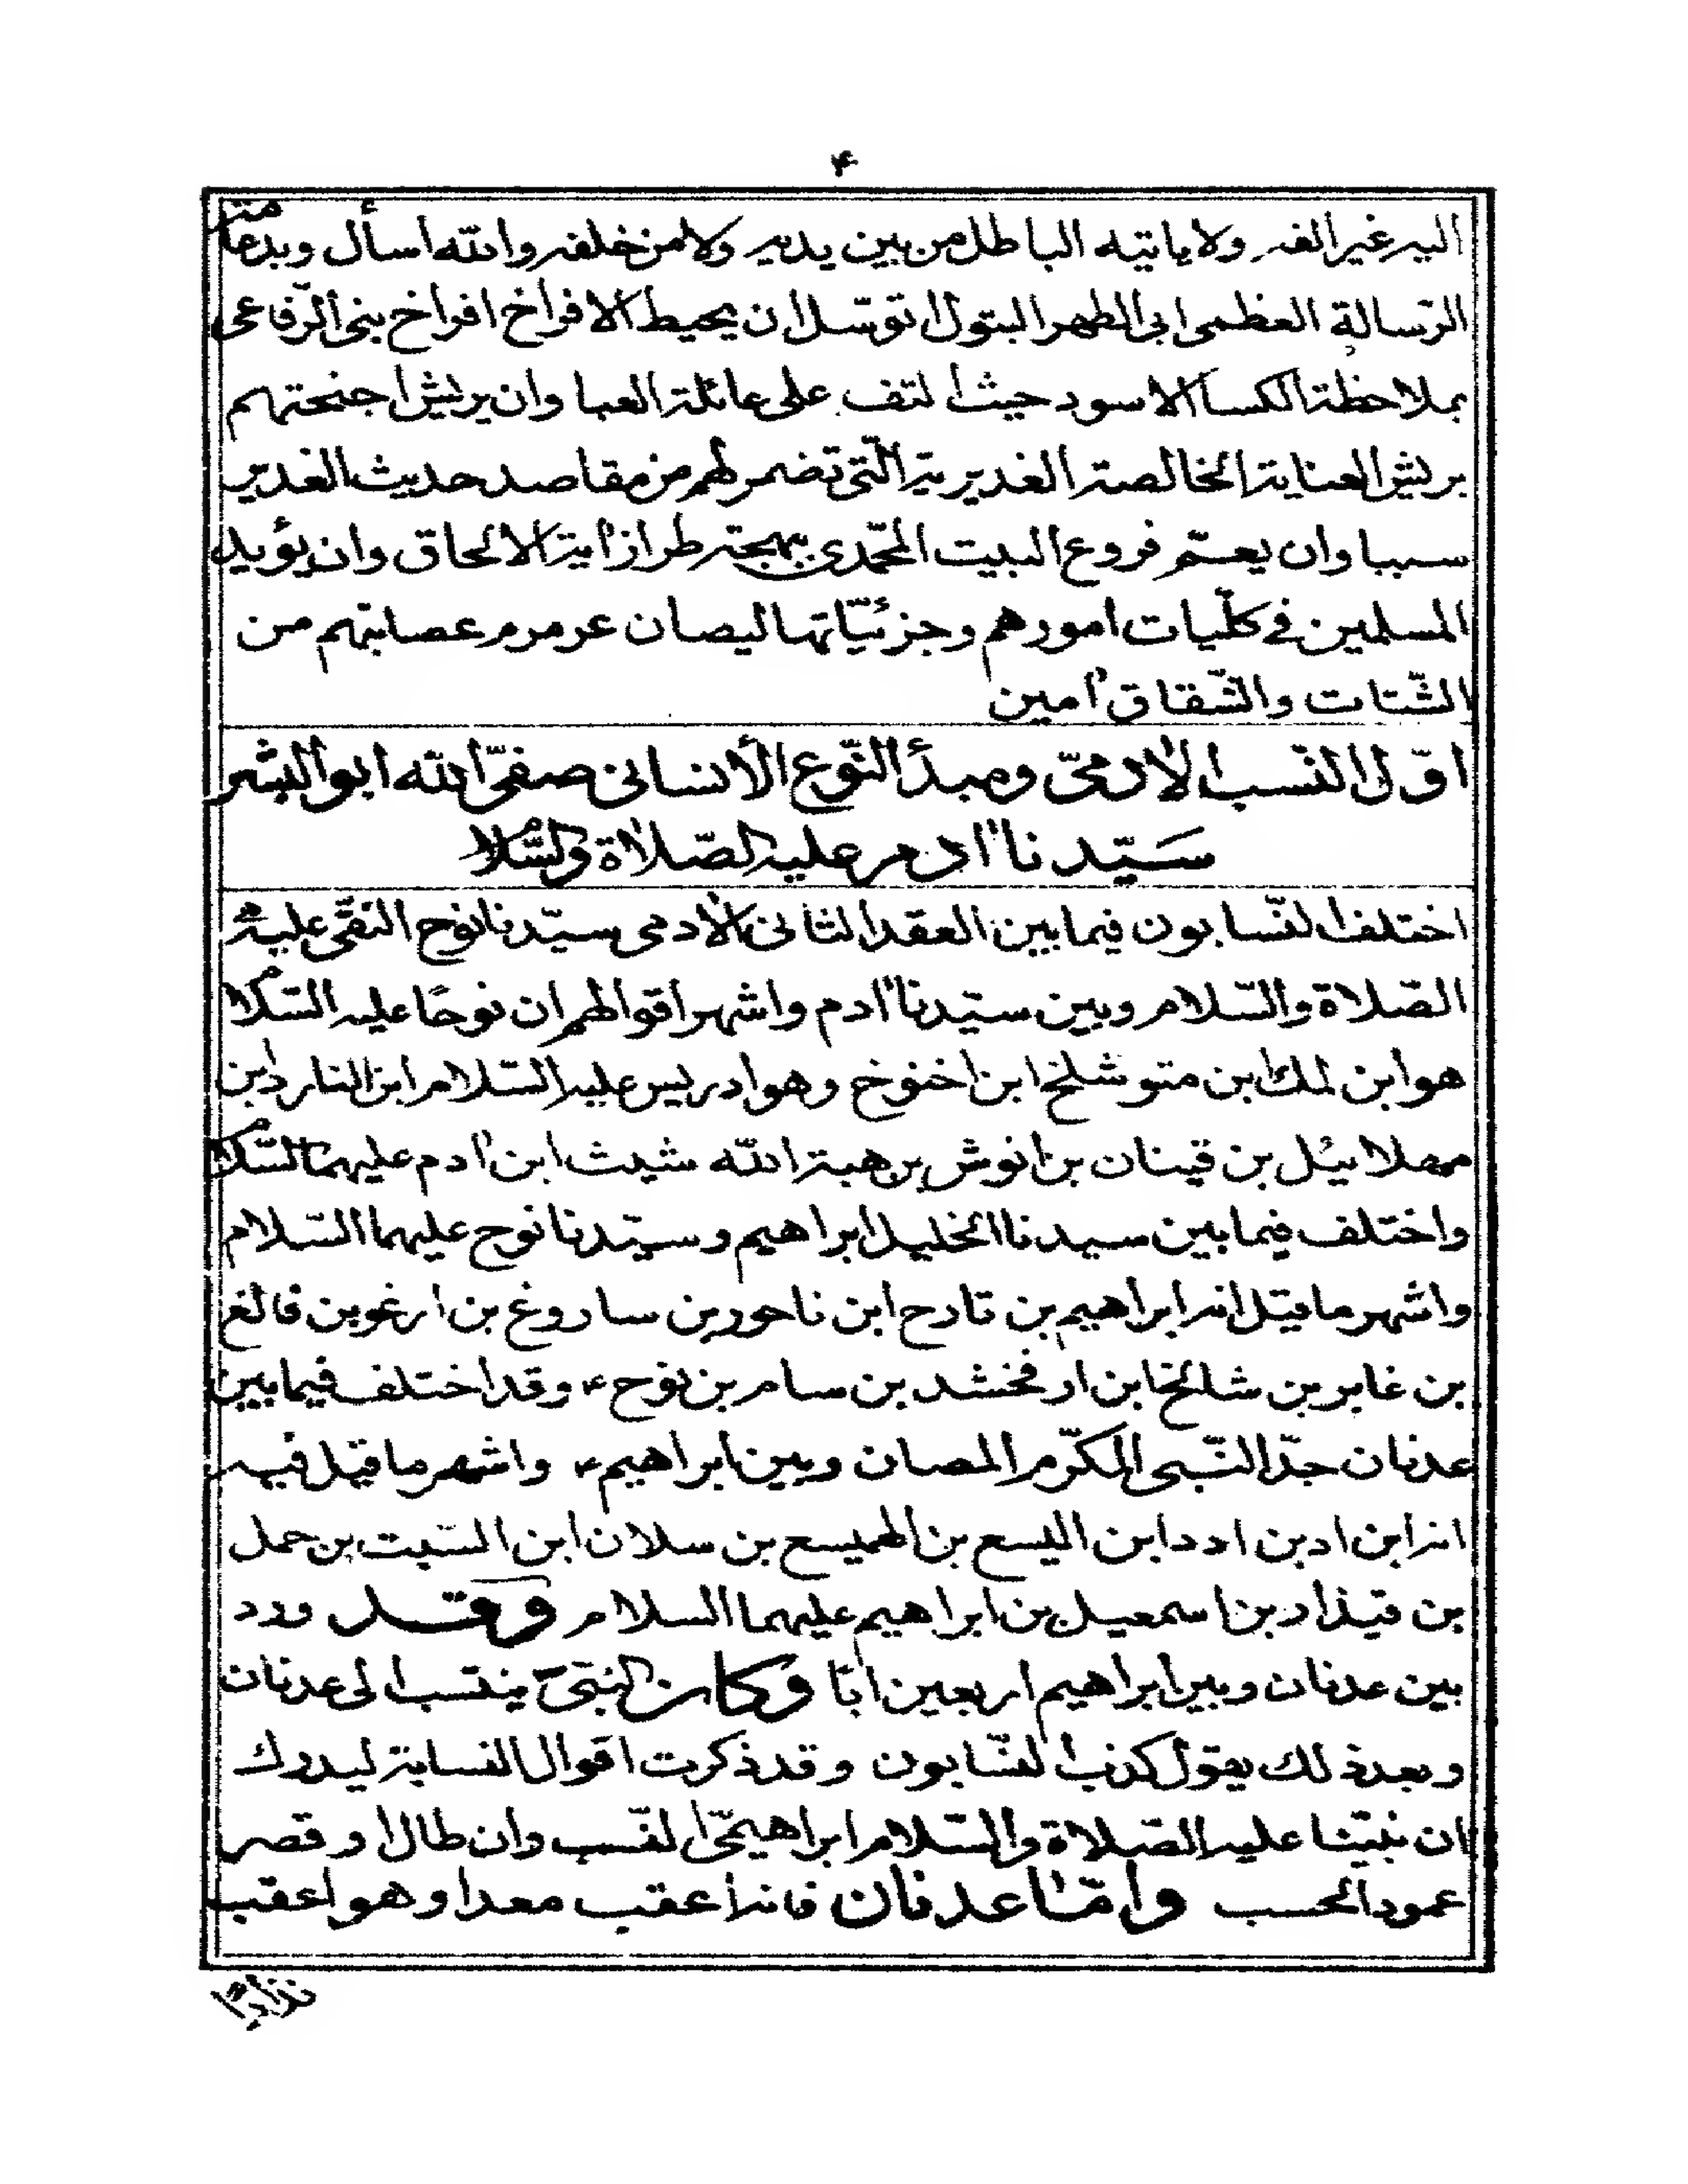 ۴
اليه غير الفه ولا ياتيه الباطل من بين يديه ولا من خلفه والله اسأل وبدعامة
الرّسالة العظمى ابى الطهر البتول اتوسّل ان يحيط الافراخ افراخ بنى الرّفاعى
بملاحظة الكسا الاسود حيث التف على عائلة العبا وان يريش اجنحتهم
بريش العناية الخالصة الغديرية الّتى تضمر لهم من مقاصد حديث الغدير
سببا وان يعمّ فروع البيت المحّمدى ببهجة طراز اية الالحاق وان يؤيد
المسلمين فى كلّيات امورهم وجزئيّاتها ليصان عرمرم عصابتهم من
الشّتات والشّقاق امين
اوّل النّسب الادمىّ ومبدأ النّوع الأنسانى صفىّ الله ابو البشر
سَيّدنا ادم عليه الصّلاة والسّلام
اختلف النّسابون فيما بين العقد الثانى الادمى سيّدنا نوح النقىّ عليه
الصّلاة والسّلام وبين سيّدنا ادم واشهر اقوالهم ان نوحًا عليه السّلام
هو ابن لمك ابن متوشلخ ابن اخنوخ وهو ادريس عليه السّلام ابن النارد ابن
مهلائيل بن قينان بن انوش بن هبة الله شيث ابن ادم عليهما السّلام
واختلف فيما بين سيدنا الخليل ابراهيم وسيّدنا نوح عليهما السّلام
واشهر ما قيل انه ابراهيم بن تارح ابن ناحور بن ساروغ بن ارغو بن فالغ
بن غابر بن شالخ ابن ارفخشد بن سام بن نوح ء وقد اختلف فيما بين
عدنان جدّ النّبى المكرّم المصان وبين ابراهيم ء واشهر ما قيل فيه
انه ابن اد بن ادد ابن اليسع بن الهميسع بن سلان ابن السّبت بن حمل
بن قيذار بن اسمعيل بن ابراهيم عليهما السلام وقد ورد
بين عدنان وبين ابراهيم اربعين ابًا وكان النبىّ ينتسب الى عدنان
وبعد ذلك يقول كذب النسّابون وقد ذكرت اقوال النسابة ليدرك
ان نبيّنا عليه الصّلاة والسّلام ابراهيمىّ النّسب وان طال او قصر
عمود الحسب وامّا عدنان فانه اعقب معدا وهو اعقب
نزارًا